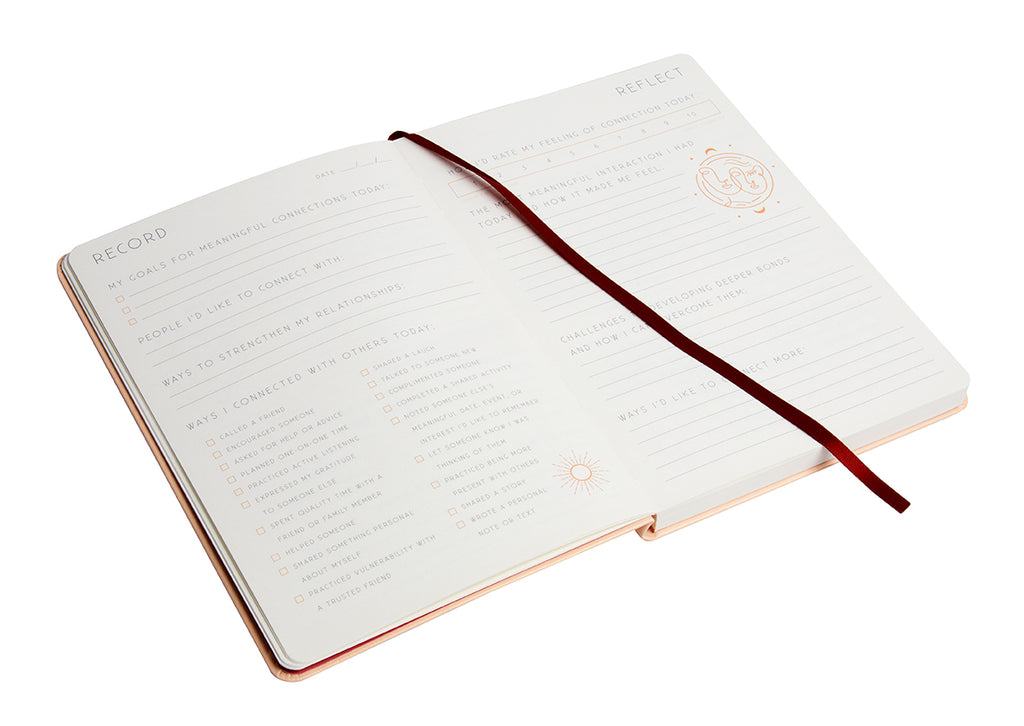 DATE / /
RECORD
MY GOALS FOR MEANINGFUL CONNECTIONS TODAY:
PEOPLE I'D LIKE TO CONNECT WITH:
WAYS TO STRENGTHEN MY RELATIONSHIPS:
WAYS I CONNECTED WITH OTHERS TODAY:
CALLED A FRIEND
ENCOURAGED SOMEONE
ASKED FOR HELP OR ADVICE
PLANNED ONE-ON-ONE TIME
PRACTICED ACTIVE LISTENING
EXPRESSED MY GRATITUDE
TO SOMEONE ELSE
SPENT QUALITY TIME WITH A
FRIEND OR FAMILY MEMBER
HELPED SOMEONE
SHARED SOMETHING PERSONAL
ABOUT MYSELF
PRACTICED VULNERABILITY WITH
A TRUSTED FRIEND
SHARED A LAUGH
TALKED TO SOMEONE NEW
COMPLIMENTED SOMEONE
COMPLETED A SHARED ACTIVITY
NOTED SOMEONE ELSE'S
MEANINGFUL DATE, EVENT, OR
INTEREST I'D LIKE TO REMEMBER
LET SOMEONE KNOW I WAS
THINKING OF THEM
PRACTICED BEING MORE
PRESENT WITH OTHERS
SHARED A STORY
WROTE A PERSONAL
NOTE OR TEXT
REFLECT
I'D RATE MY FEELING OF CONNECTION TODAY
3 4 5 6 7 8 9 10
THE MEANINGFUL INTERACTION I HAD
TODAY AND HOW IT MADE ME FEEL:
CHALLENGES DEVELOPING DEEPER BONDS
AND HOW I CAN OVERCOME THEM:
WAYS I'D LIKE TO CONNECT MORE: